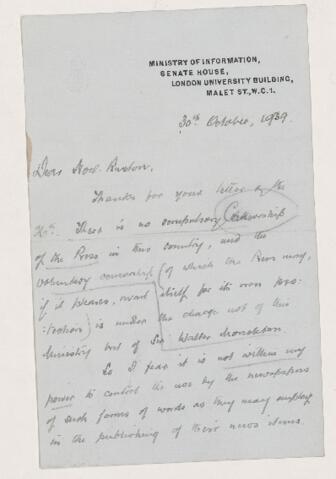 MINISTRY OF INFORMATION,
SENATE HOUSE,
LONDON UNIVERSITY BUILDING,
MALET ST., W.C.1.
30th October, 1939.
Dear
Thanks for your letter of the
There is no compulsory Censorship
of the Press in this country, and the
voluntary censorship (of which the Press may,
if it pleases, avail itself for its own pro-
-tection) is under the charge not of this
Ministry but of Sir Walter Monckton.
So I fear it is not within my
power to control the use by the newspapers
of such forms of words as they may employ
in the publishing of their news items.